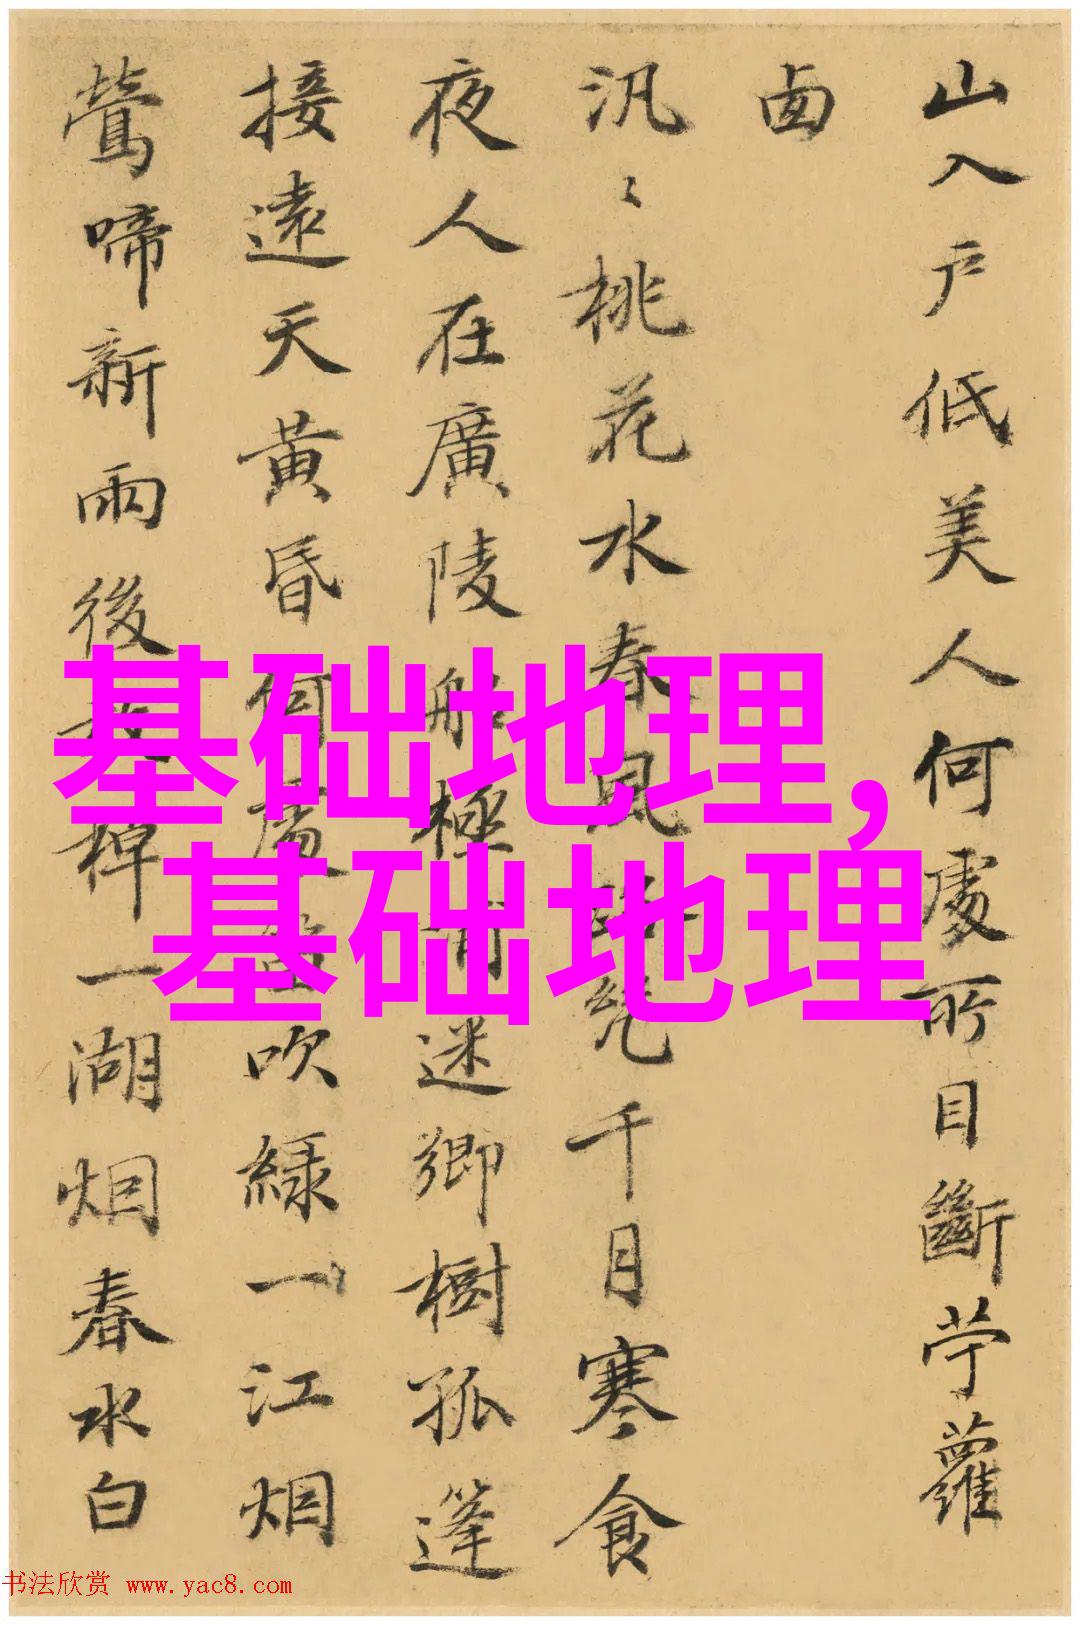 山入户低美人何處所目斷苧蘿
西
汎〻桃花水春風千月寒食
夜人在廣陵船極浦迷鄉樹孤篷
接遠天黃昏何處笛吹綠一江烟
鶯啼新雨後棹一湖烟春水白
基础地理,
基础地理
书法欣赏 www.yac8.com